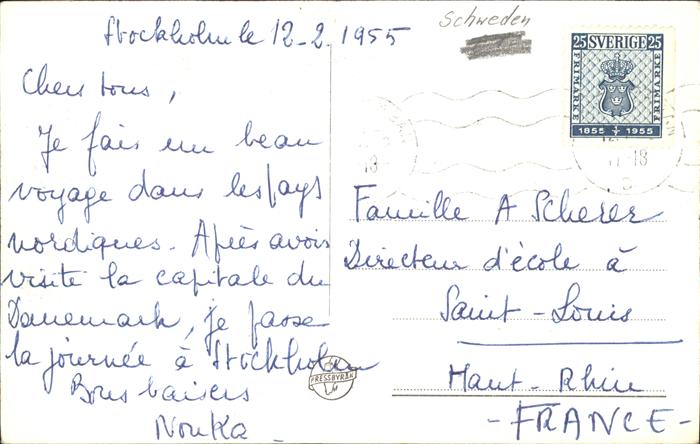 Stockholm le 12-2.1955
Schweden
Chers tous,
Je fais un beau
voyage dans les pays
nordiques. Après avoir
visité la capitale du
Danemark, je passe
la journée à Stockholm
Bons baisers
Nouka
PRESSBYRÅN
25 SVERIGE 25
FRIMÄRKE FRIMÄRKE
1855 1955
18
11-18
Famille A Scherer
Directeur d'école à
Saint-Louis
Haut-Rhin
-FRANCE-